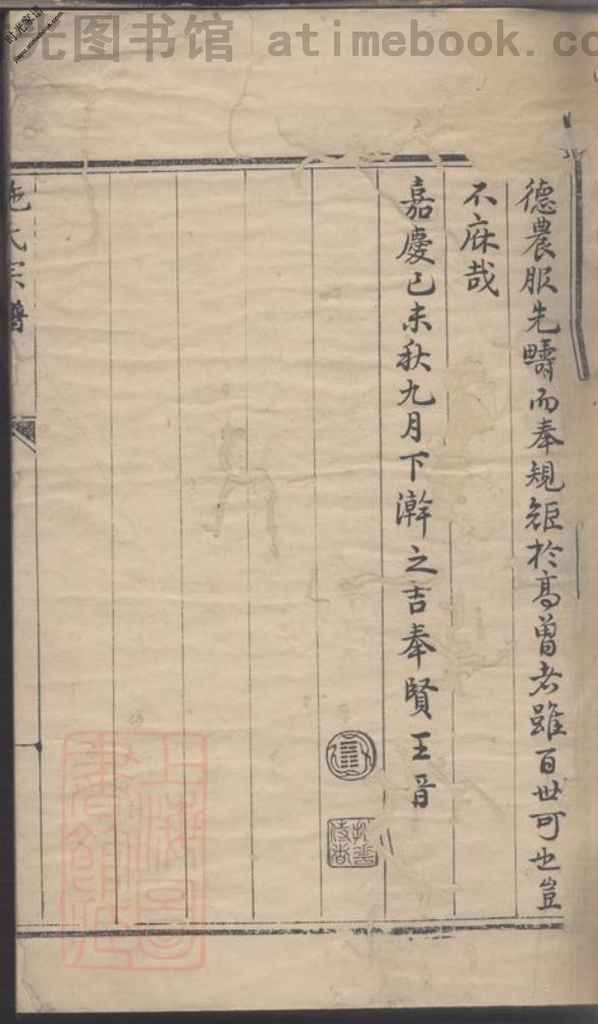 光图书馆 atimebook.co
德農服先疇而奉規矩於高曾者雖百世可也豈
不庥哉
嘉慶己未秋九月下澣之吉奉賢王晉
施氏宗譜
上海圖書館藏